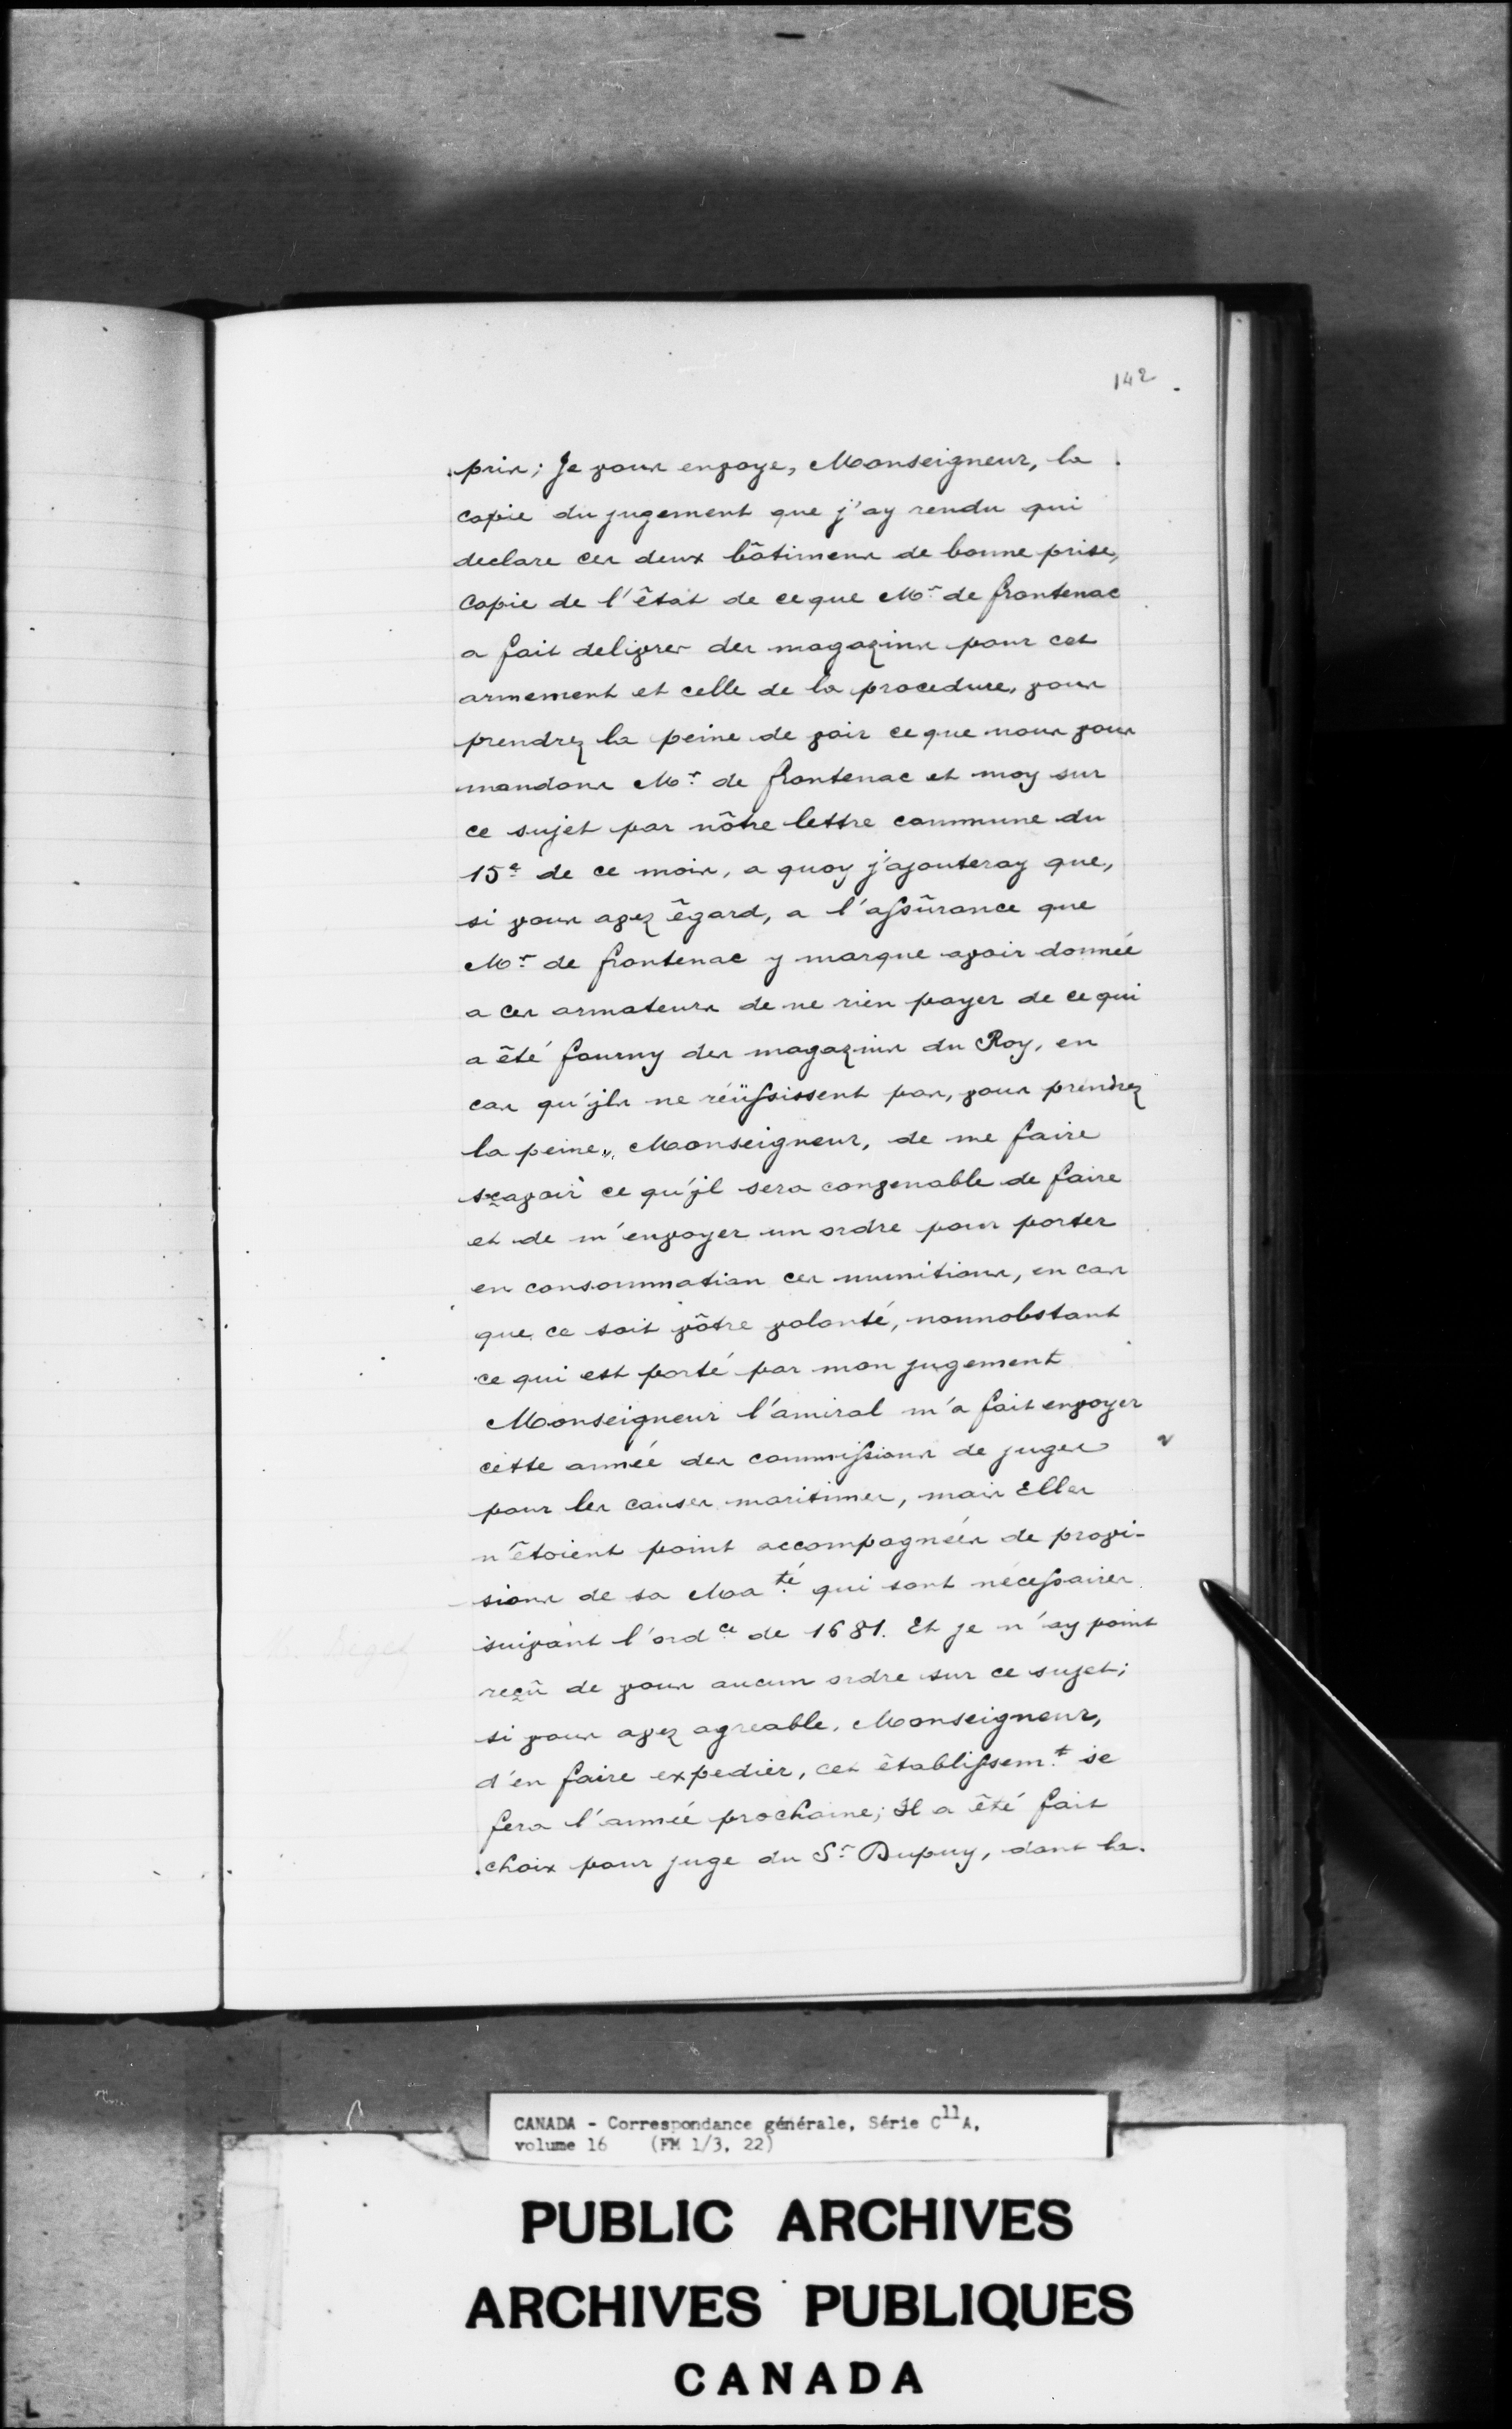 142
pris; Je vous envoye, Monseigneur, la
copie du jugement que j'ay rendu qui
declare ces deux bâtimens de bonne prise,
Copie de l'êtat de ce que Mr. de frontenac
a fait delivrer des magazins pour cet
armement et celle de la procedure, vous
prendrez la peine de voir ce que nous vous
mandons Mr. de frontenac et moy sur
ce sujet par nôtre lettre commune du
15e. de ce mois, a quoy j'ajouteray que,
si vous avez êgard, a l'assûrance que
Mr. de frontenac y marque avoir donnée
a ces armateurs de ne rien payer de ce qui
a êté fourny des magazins du Roy, en
cas qu'jls ne réüssissent pas, vous prendrez
la peine, Monseigneur, de me faire
sçavoir ce qu'jl sera convenable de faire
et de m'envoyer un ordre pour porter
en consommation ces munitions, en cas
que ce soit vôtre volonté, nonnobstant
ce qui est porté par mon jugement
Monseigneur l'amiral m'a fait envoyer
cette année des commissions de juges
pour les causes maritimes, mais Elles
n'êtoient point accompagnées de provi-
sions de sa Maté. qui sont nécessaires
suivant l'ordce. de 1681. Et je n'ay point
reçû de vous aucun ordre sur ce sujet;
si vous avez agreable, Monseigneur,
d'en faire expedier, cet êtablissemt. se
fera l'année prochaine; Il a êté fait
choix pour juge du Sr. Dupuy, dont la
CANADA - Correspondance générale, Série C11A,
volume 16 (FM 1/3, 22)
PUBLIC ARCHIVES
ARCHIVES PUBLIQUES
CANADA